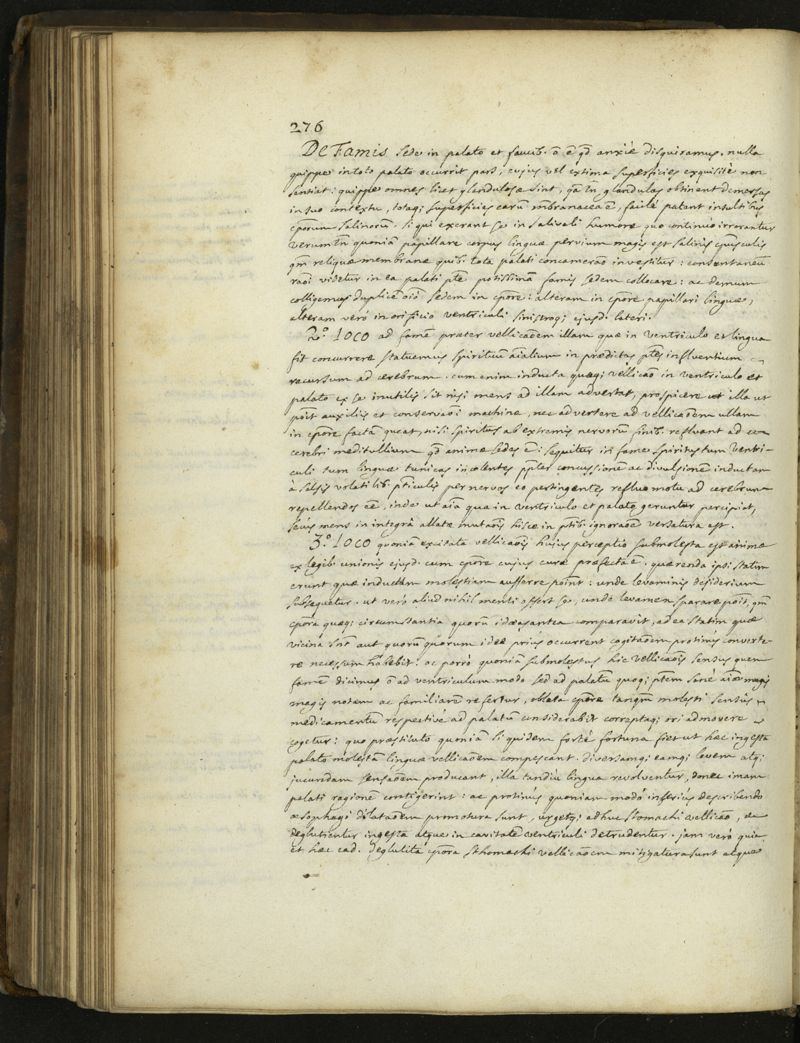 276
De Famis sede in palato et faucib. õ ē qd anxiè disquiramus. nulla
quippe in toto palato occurrit pars, cujus vel extima superficies exquisitè non
sentiat: quippe omnes licet glandulosæ sint, qa tñ glandulas obtinent demersas
in suo contextu, totaq; superficies earũ mbranacea ē, facilè patent insultibus
cporum salinorũ. si qui exerant se in salivali humore quo continuò irrorantur
verumtñ quoniã papillare corpus linguæ pervium magis est salinis cpusculis
qm reliquæ membranæ quib. tota palati concamerao investitur: consentaneũ
raoi videtur in ea palati pte potissimã famis sedem collocare: ac demum
colligemus duplicē sedem in cpore: alteram in cpore papillari linguæ,
alteram verò in orificio ventriculi sinistroq; ejusd. lateri.
2.º loco ad famē præter vellicaōem illam quæ in ventriculo et lingua
fit concurrere statuemus spirituũ aialium in prædictas ptes influentium
recursum ad cerebrum. cum enim inducta quæq; vellicaō in ventriculo et
palato ex se inutilis sit nisi mens ad illam advertat, prospicere ut illa ut
poit auxiliis et conservaōi machinæ, nec advertere ad vellicaōem ullam
in cpore factã queat, nisi spiritus ab extremis nervorũ finib. refluant ad
cerebri meditullium qd animæ sedes ē: sequitur in fame spiritus tum ventri-
culi tum linguæ tunicas incolentes ppter concussionē ac divulsionē inductam
à salsis volatilib. pticulis per nervos eo pertingentes refluo motu ad cerebrum
repellendos eē, inde ut aia quæ in ventriculo et palato geruntur percipiat,
secus mens in integrâ allatæ mutaōis hisce in ptib. ignoraōe versatura est.
3.º loco quoniã excitatæ vellicaōis hujus perceptio submolesta est animæ
ex legib. unionis ejusd. cum cpore cujus curæ præfecta ē. quærenda ipsi statim
erunt quæ inductam molestiam aufferre point: unde levaminis desiderium
subsequetur. ut verò aliud nihil menti offert se, unde levamen sperare poit, qm
cpora quæq; circumstantia quorũ ideas antea comparavit, ad ea statim quæ
vicina sint aut quorũ quorum ideæ priùs occurrent cogitaōem protinùs converte-
re necessum habebit: ac porrò quoniã submolestus hic vellicaōis sensus quem
famē dicimus õ ad ventriculum modo sed ad palatũ quoq; ptem sanè aiæ magis
magis notam ac familiarē refertur, oblata cpora tanqm molesti sensus
medicamentũ respectivè ad palatũ considerabit correptaq; ori admovere
cogetur: quo præstituto quoniã si quidem fortè fortuna fiet ut hæc ingesta
palato molestã linguæ vellicaōem compescant. diversamq; eamq; levem atq;
jucundam sensaōem producant, illa tandiu lingua revolventur, donec imam
palati ragionē contigerint: ac protinùs quoniam modò inferiùs describendo
œsophagi dilataōem promotura sunt, urgetq; adhuc stomachi vellicaō, ea
deglutientur ingesta atque in cavitatē ventriculi detrudentur. jam verò quia
et hæc ead. deglutita cpora sthomachi vellicaōem mitigatura sunt atque